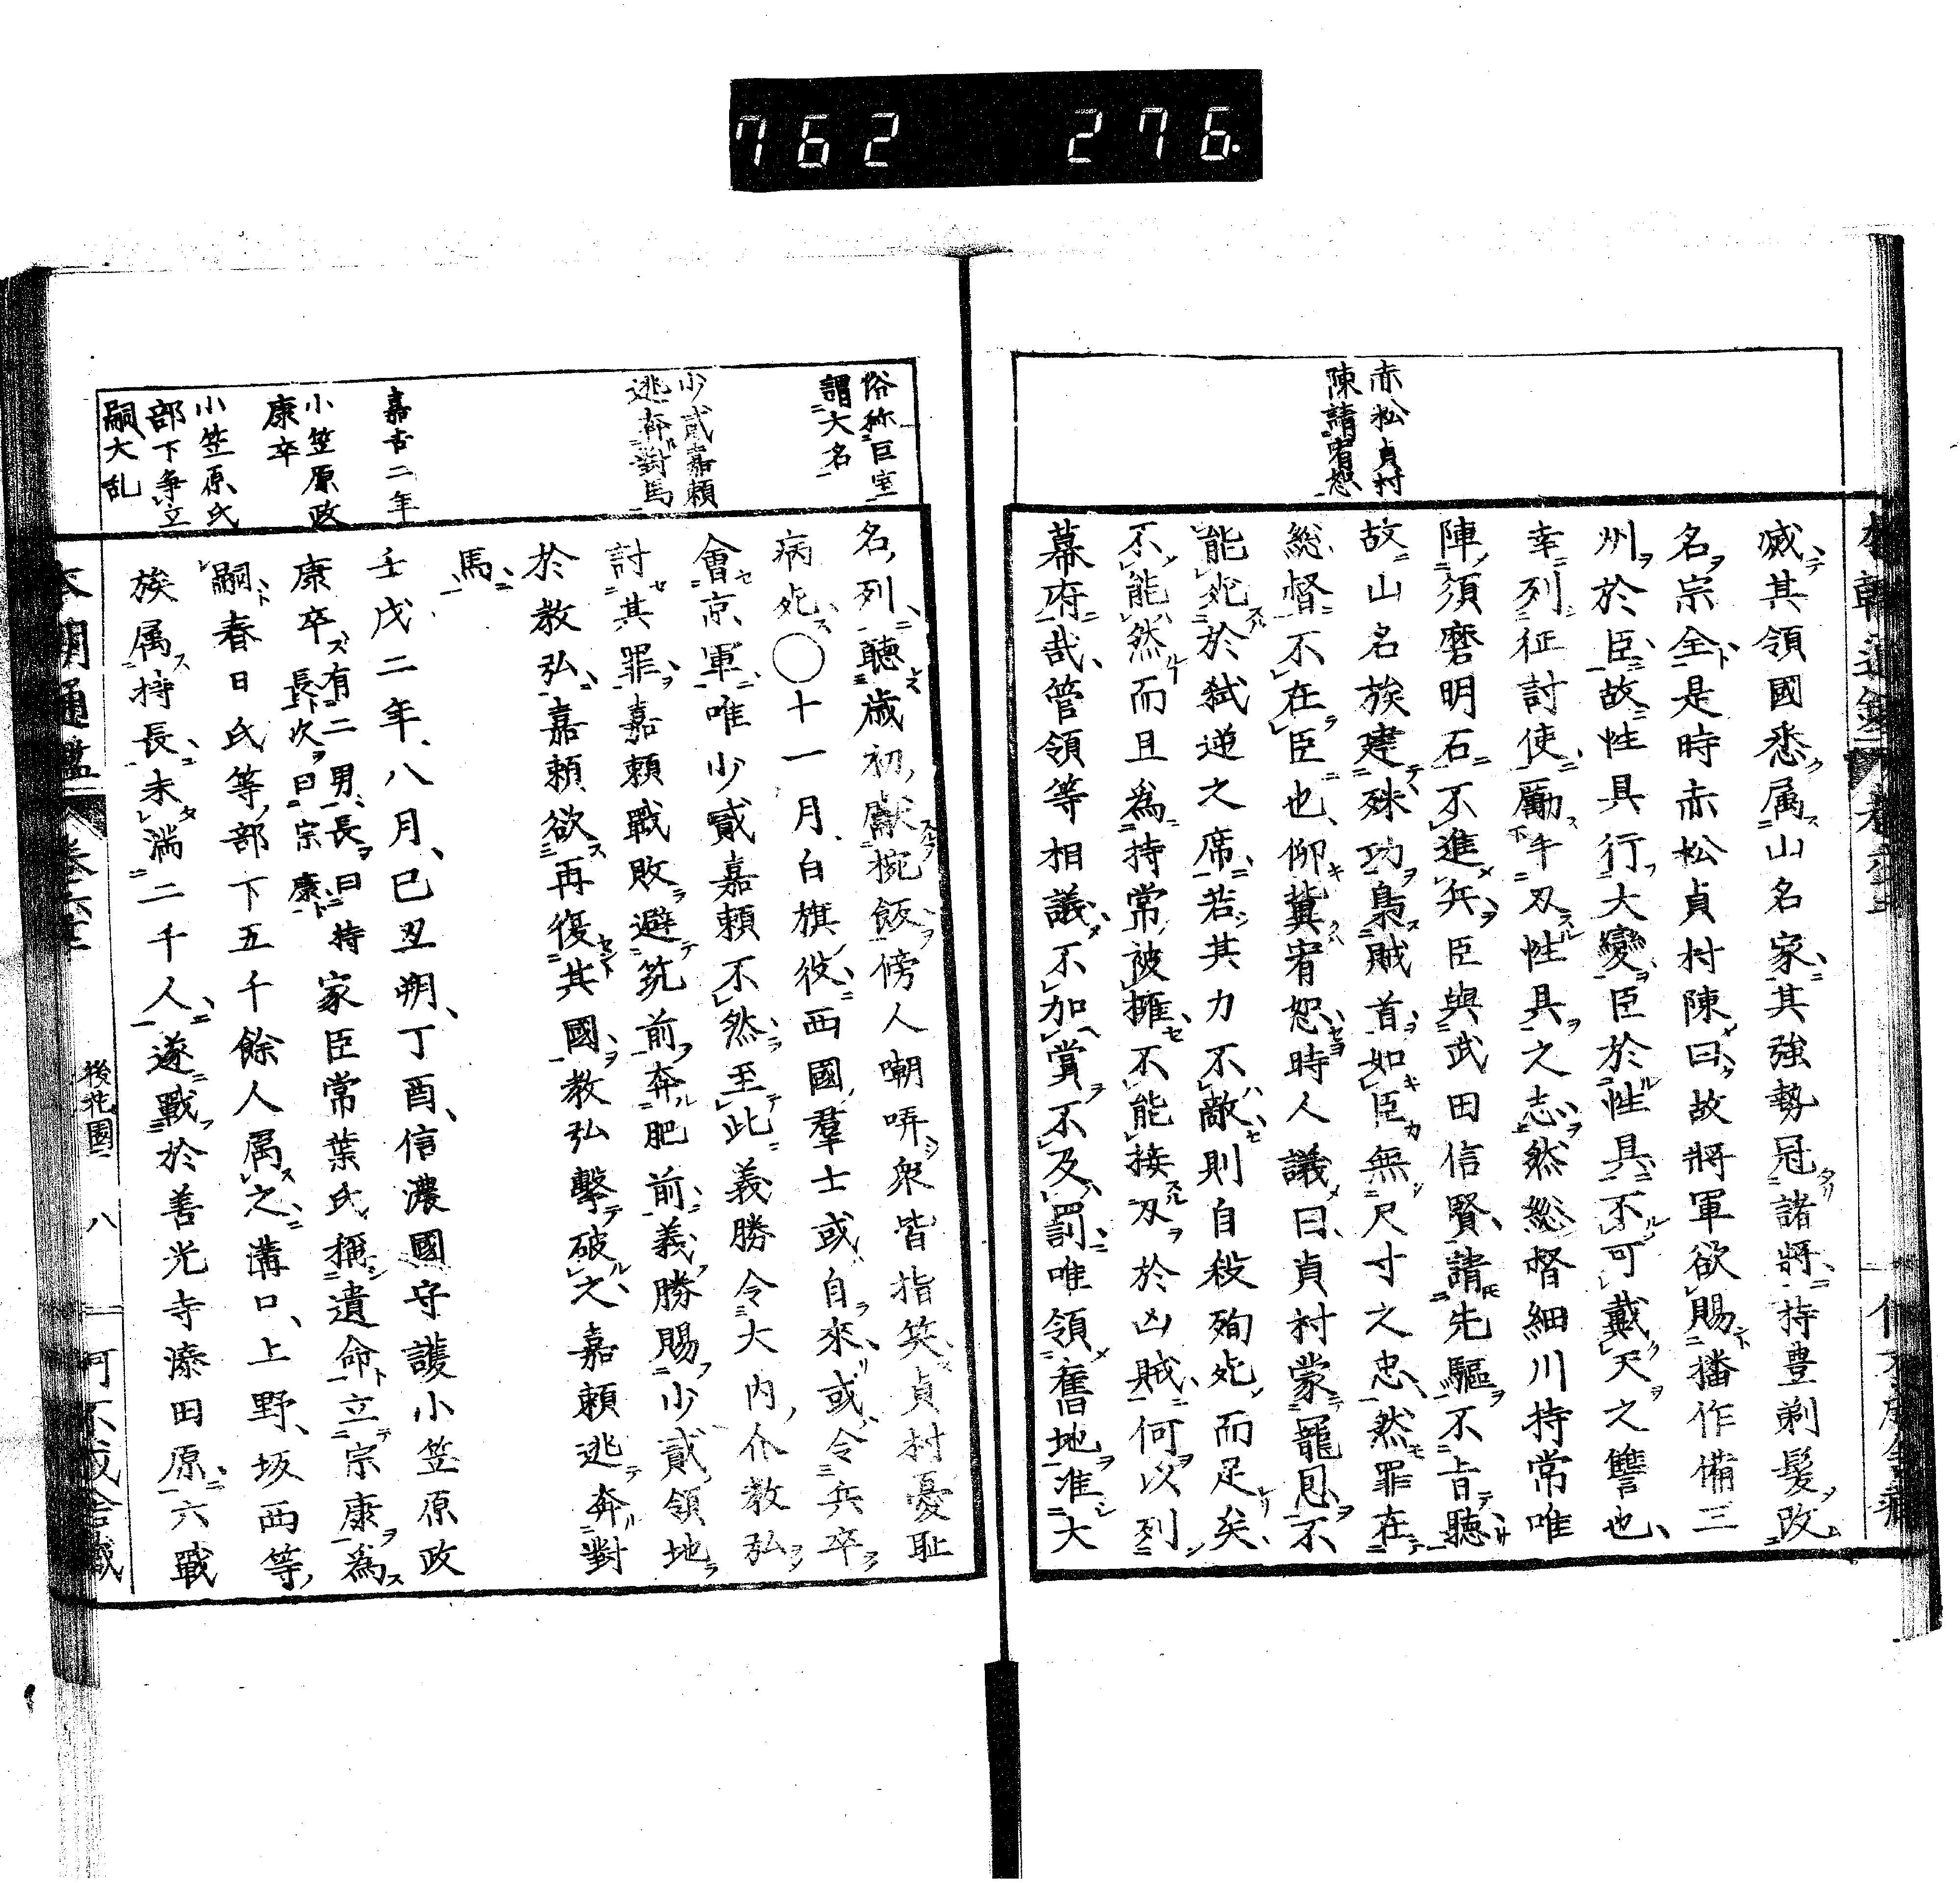 762 276.
赤松貞村
陳請宥恕
滅其領國悉属山名家其強勢冠諸將持豊剃髮改
名宗全是時赤松貞村陳曰故將軍欲賜播作備三
州於臣故性具行大變臣於性具不可戴天之讐也
幸列征討使勵牛刄性具之志然総督細川持常唯
陣須磨明石不進兵臣與武田信賢請先驅不肯聽
故山名族建殊功梟賊首如臣無尺寸之忠然罪在
総督不在臣也仰冀宥恕時人議曰貞村蒙寵恩不
能死於弑逆之席若其力不敵則自殺殉死而足矣
不能然而且爲持常被擁不能接刄於凶賊何以列
幕府哉管領等相議不加賞不及罰唯領舊地准大
俗称巨室
謂大名
少貳嘉頼
逃奔對馬
嘉吉二年
小笠原政
康卒
小笠原氏
部下争立
嗣大乱
名列聽歳初獻椀飯傍人嘲哢衆皆指笑貞村憂耻
病死〇十一月白旗役西國羣士或自來或令兵卒
會京軍唯少貳嘉頼不然至此義勝令大内介教弘
討其罪嘉頼戰敗避筑前奔肥前義勝賜少貳領地
於教弘嘉頼欲再復其國教弘擊破之嘉頼逃奔對
馬
壬戌二年八月己丑朔丁酉信濃國守護小笠原政
康卒有二男長曰持長次曰宗康家臣常葉氏稱遺命立宗康爲
嗣春日氏等部下五千餘人属之溝口上野坂西等
族属持長未満二千人遂戰於善光寺漆田原六戰
本朝通鑑
後花園 八